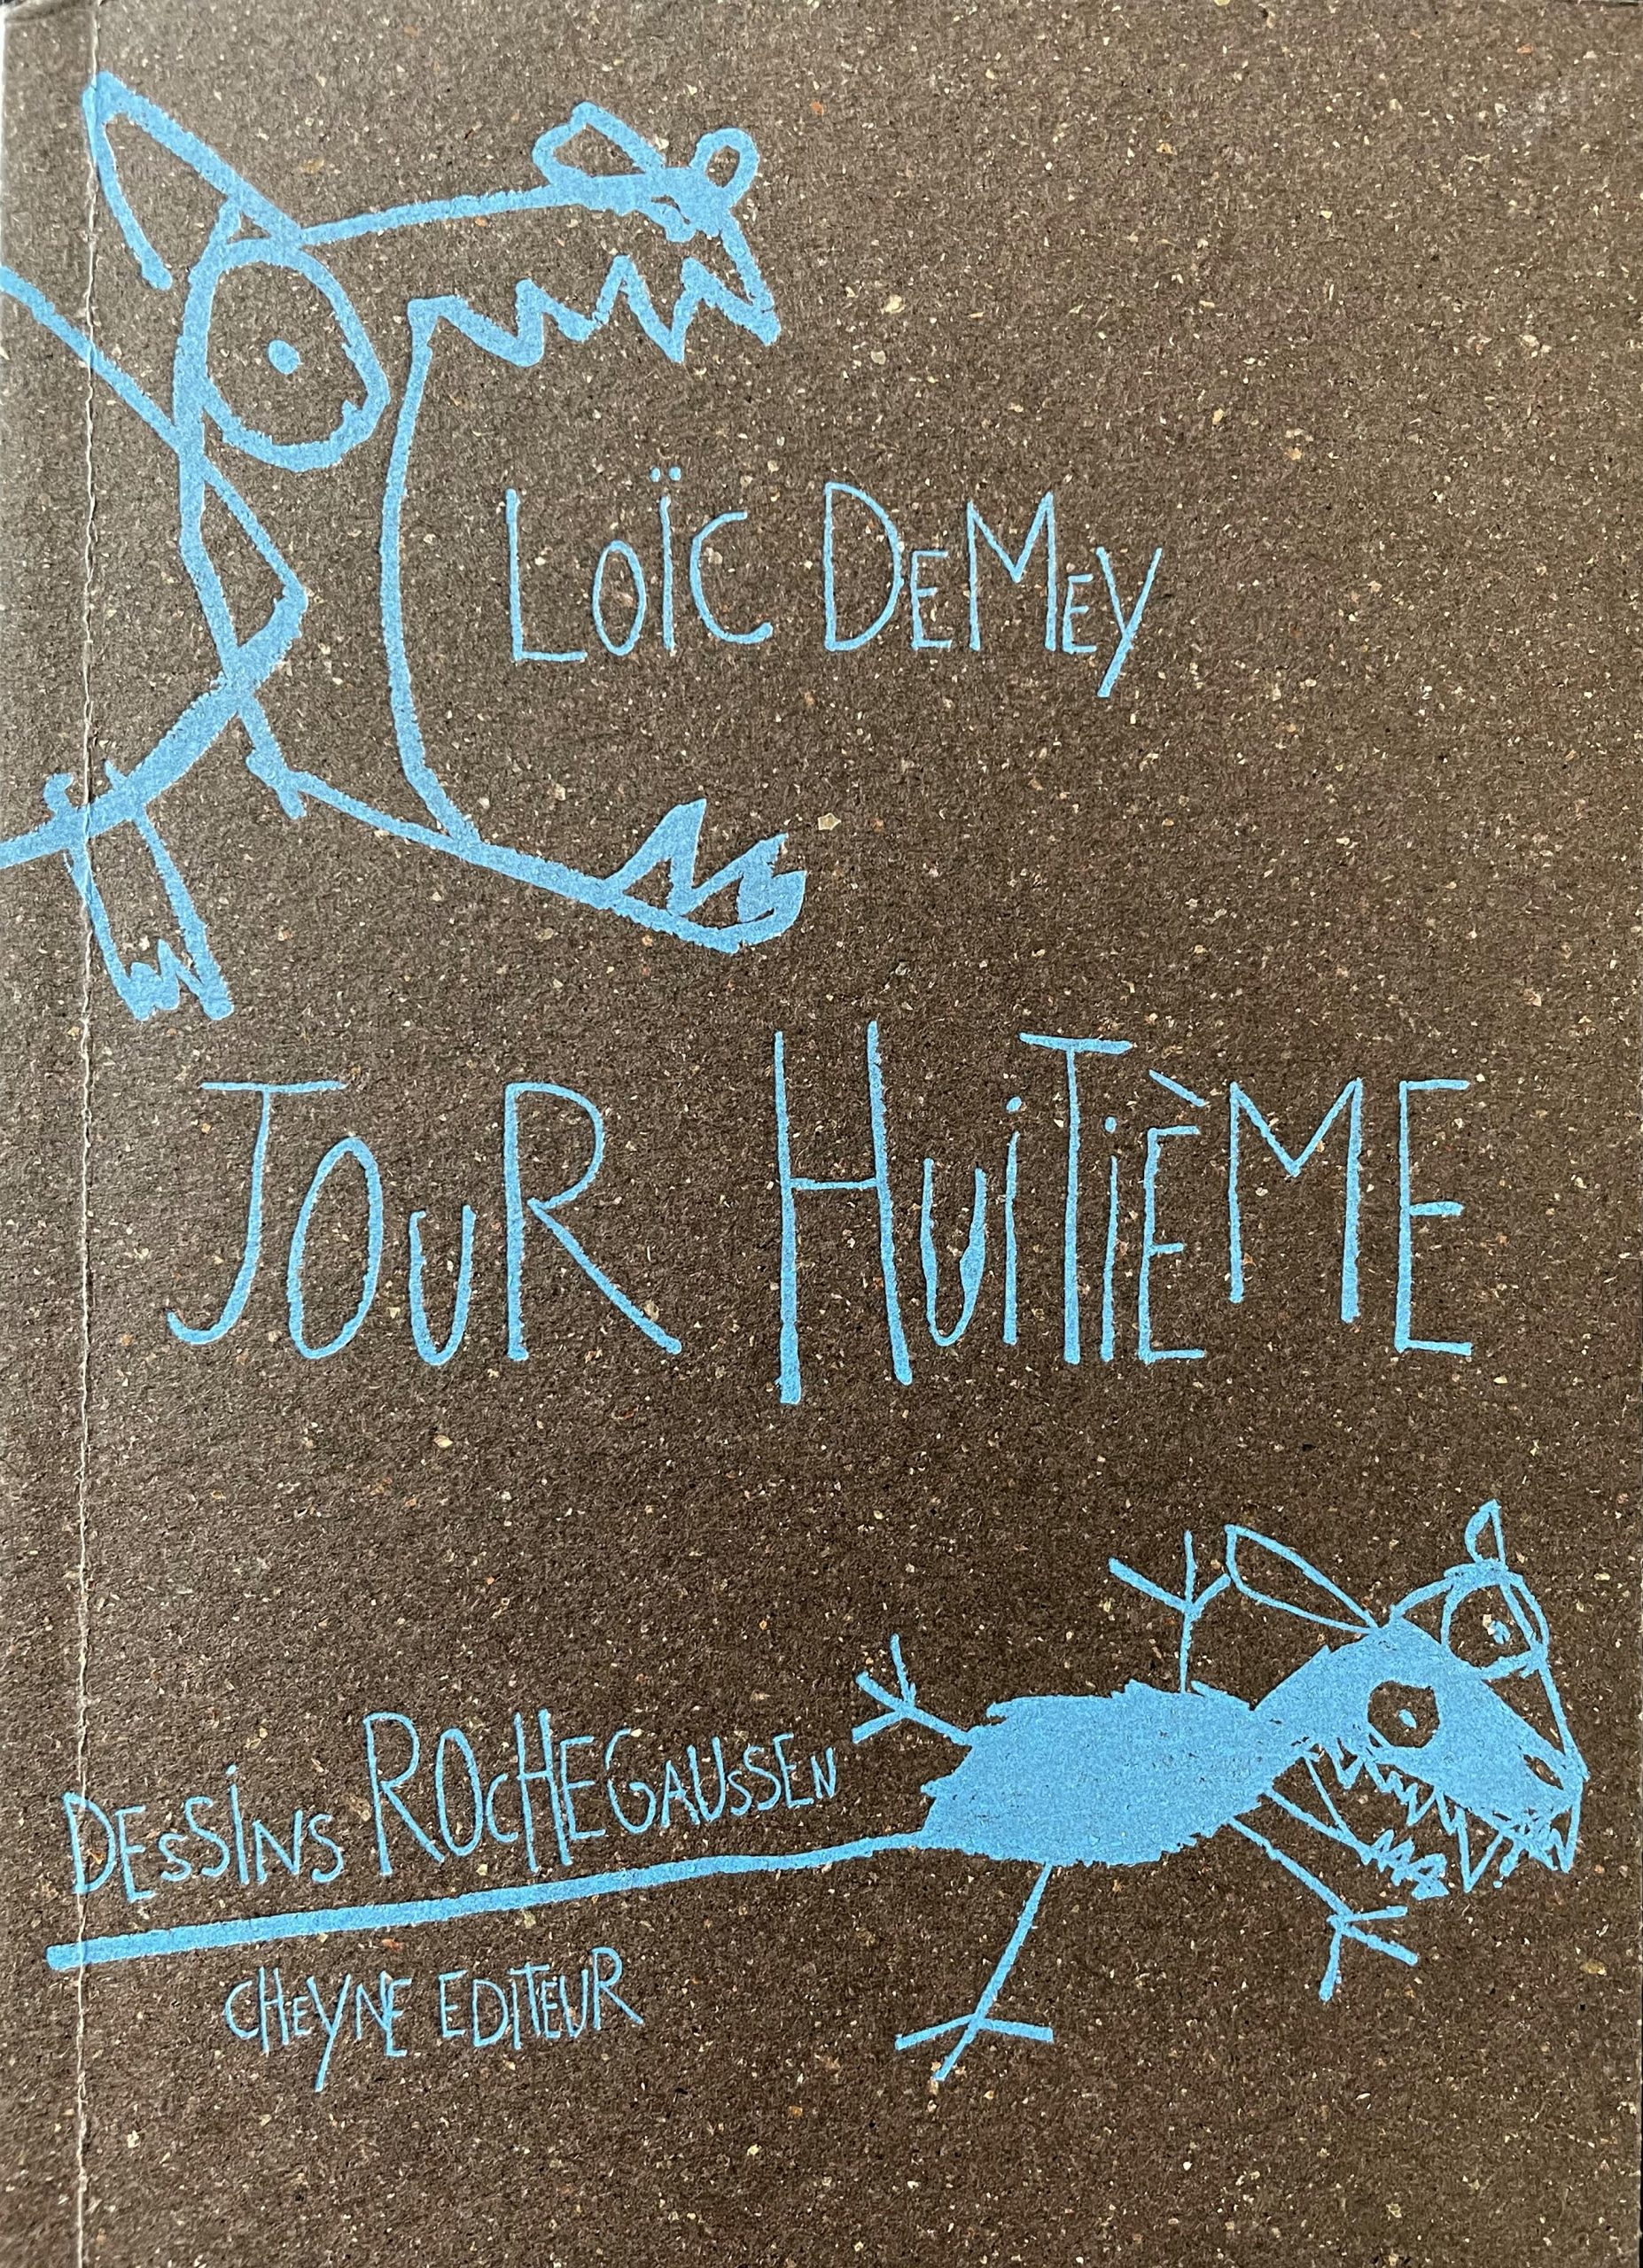 LOÏC DEMEY
JOUR HUITIÈME
DESSINS ROCHEGAUSSEN
CHEYNE EDITEUR